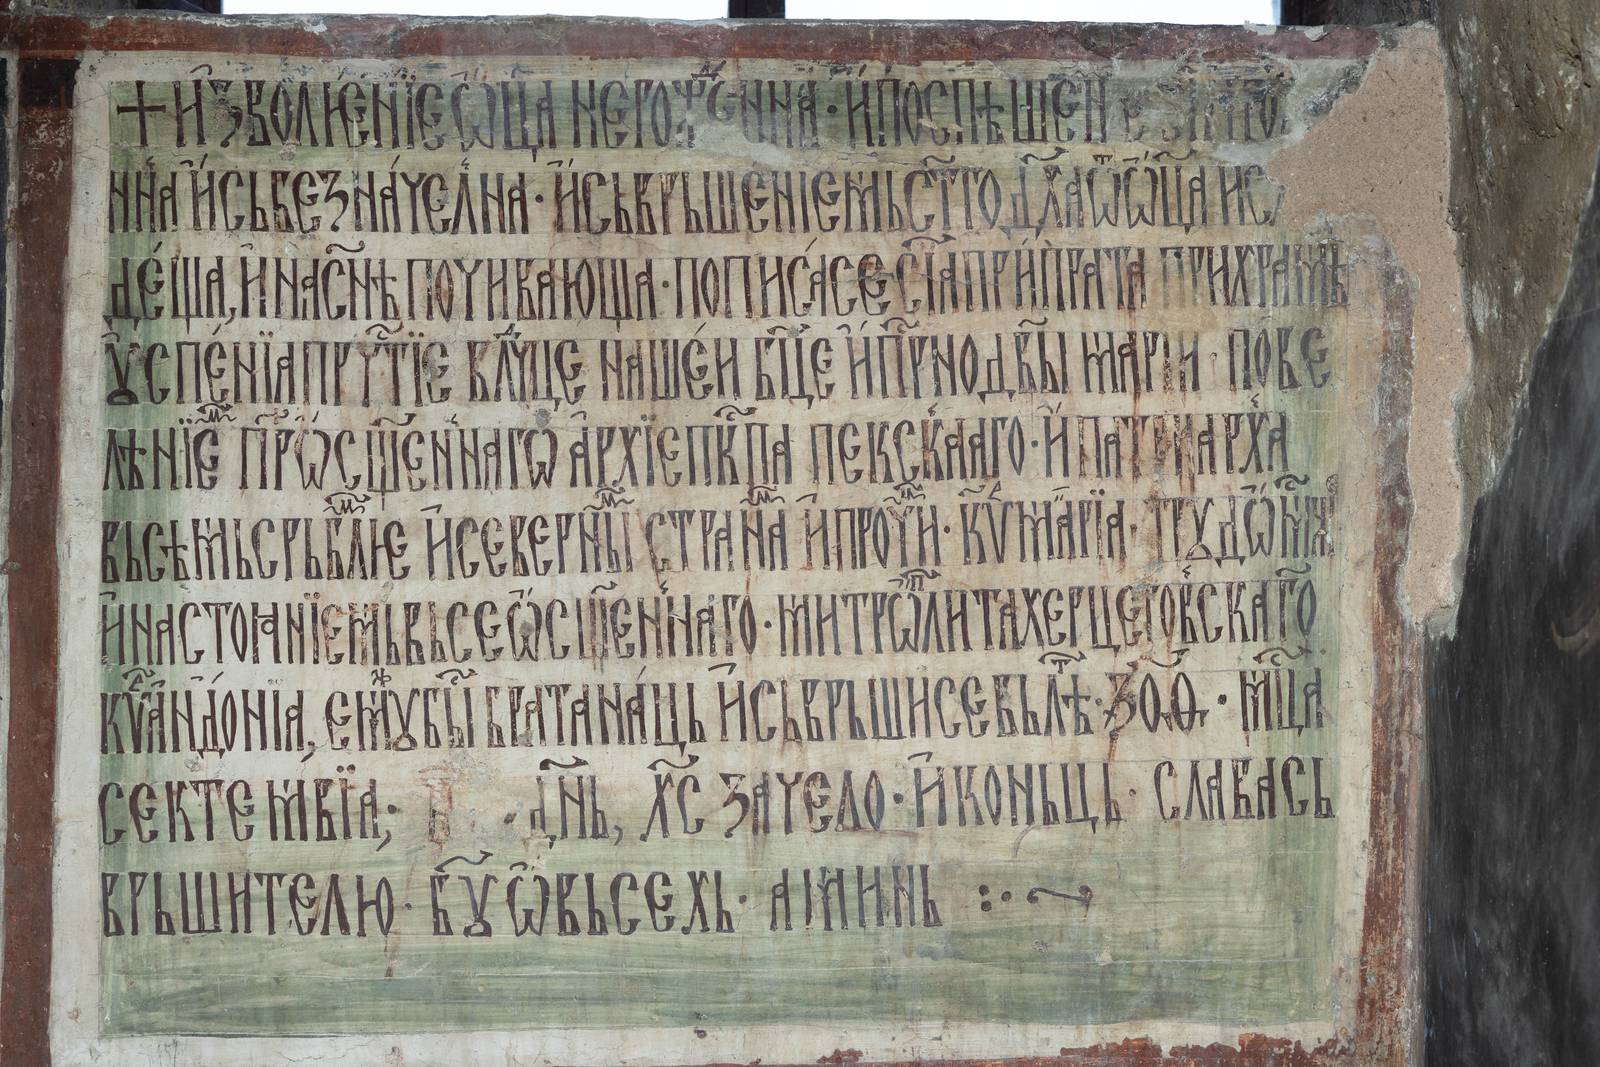 + и҆зволѥнїе ѿца негоꙋⷤенна · и҆ поспѣшен
нна и҆ сьбезначелна · и҆ сьврьшенїемь ст҃го дх҃а ѿ ѿц҃а ис
деща, и҆ на сн҃ѣ почивающа · пописа се сїа припрата при храмѣ
ꙋспенїа прч҃тїе влⷣчце нашеи бц҃е и҆ пр҃нодв҃ы марїи · пове
лѣнїеⷨ прѡ҃сщ҃еннаго архїеп҃кпа пекскааго · и҆ патриарха
вьсѣмь срьблѥⷨ и҆ северныⷨ странаⷨ и҆ прочиⷨ · кѵⷬ макарїа · трꙋдѡⷨ
и҆ настоꙗнїемь вьсеѡсщ҃еннаго · митрѡⷫлита херцеговскаго
кѵⷬ андонїа, емꙋⷤ бы братанаць и҆ сьврьши се вь лѣⷮ · ҂зоѳ · мц҃а
сектемвїа, дн҃ь, хс҃ зачело · и҆ коньць · слава сь
врьшителю · бг҃ꙋ ѿ вьсехь · аминь :·